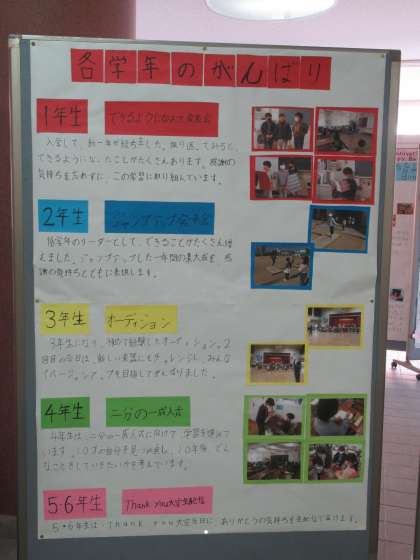 各学年のがんばり
1年生 できるようになった発表会
入学して、約一年が経ちました。振り返ってみると、
できるようになったことがたくさんあります。感謝の
気持ちを忘れずに、この学習に取り組んでいます。
2年生 ジャンプアップ発表会
低学年のリーダーとして、できることがたくさん増
えました。ジャンプアップした一年間の集大成を、感
謝の気持ちとともに表現します。
3年生 オーディション
3年生になり、初めて経験したオーディション。2
回目の今日は、新しい楽器にもチャレンジし、みんな
でバージョンアップを目指してがんばりました。
4年生 二分の一成人式
4年生は、二分の一成人式に向けて、学習を進めて
います。10才の自分を見つめ直し、10年後、どん
なことをしていきたいかを考えています。
5・6年生 Thank you大空生配信
5・6年生は、Thank you大空当日に、ありがとうの気持ちを